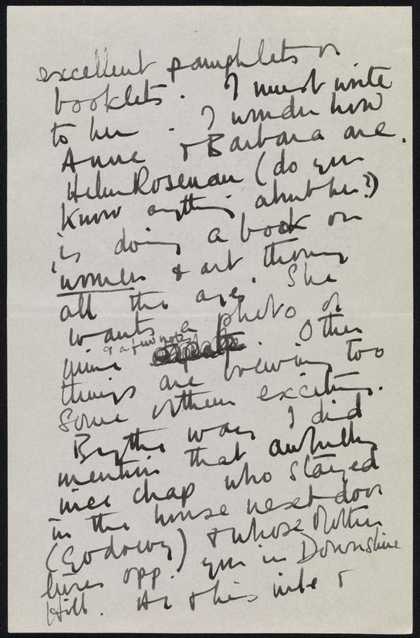 excellent pamphlets or
booklets. I must write
to her. I wonder how
Anne & Barbara are.
Helen Rosenau (do you
know anything about her?)
is doing a book on
women & art through
all the ages. She
wants a photo of
mine & a few notes. Other
things are brewing too
some of them exciting.
By the way I did
mention that awfully
nice chap who stayed
in the house next door
(Godowy) & whose Mother
lives opp. you in Downshire
Hill. He & his wife &